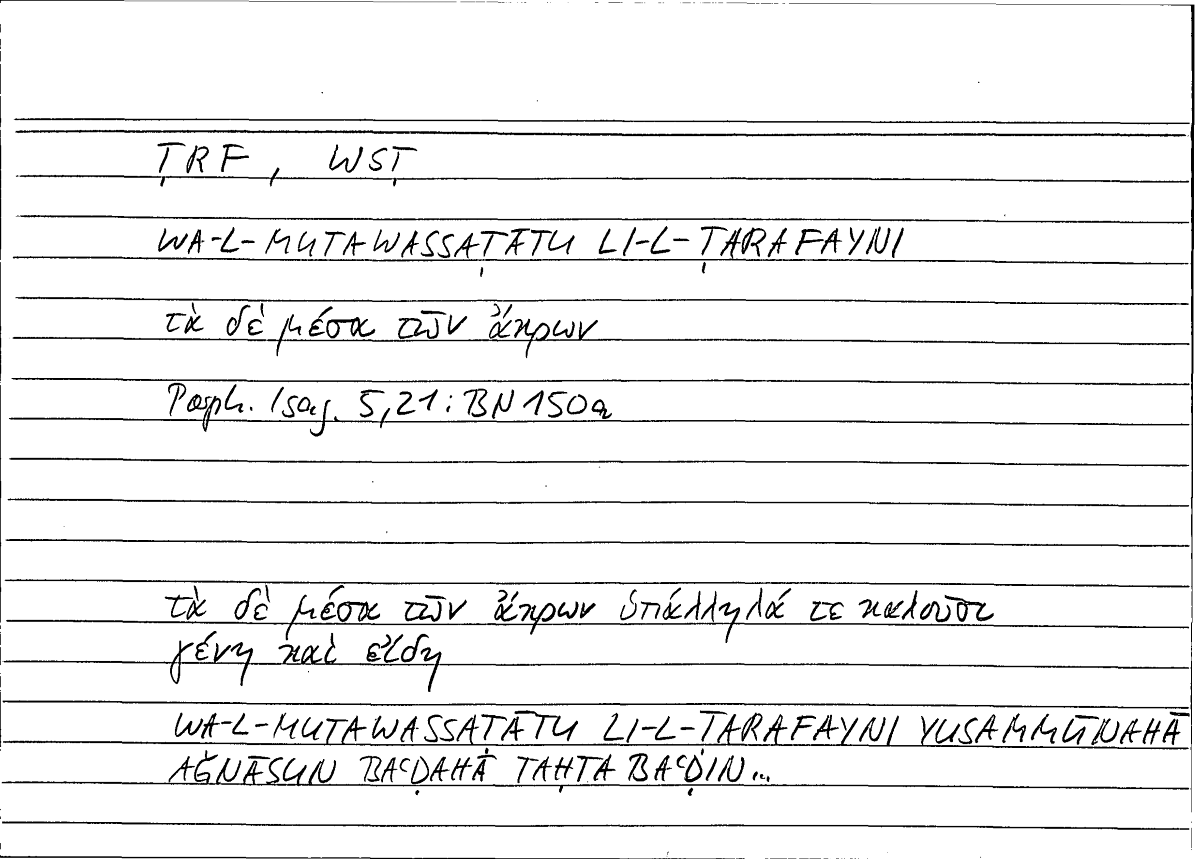 ṬRF, WSṬ
WA-L-MUTAWASSAṬĀTU LI-L-ṬARAFAYNI
τὰ δὲ μέσα τῶν ἄκρων
Porph. Isag. 5,21: BN 150a
τὰ δὲ μέσα τῶν ἄκρων ὑπάλληλά τε καλοῦσι
γένη καὶ εἴδη
WA-L-MUTAWASSAṬĀTU LI-L-ṬARAFAYNI YUSAMMŪNAHĀ
AǦNĀSUN BAʿḌAHĀ TAḤTA BAʿḌIN...